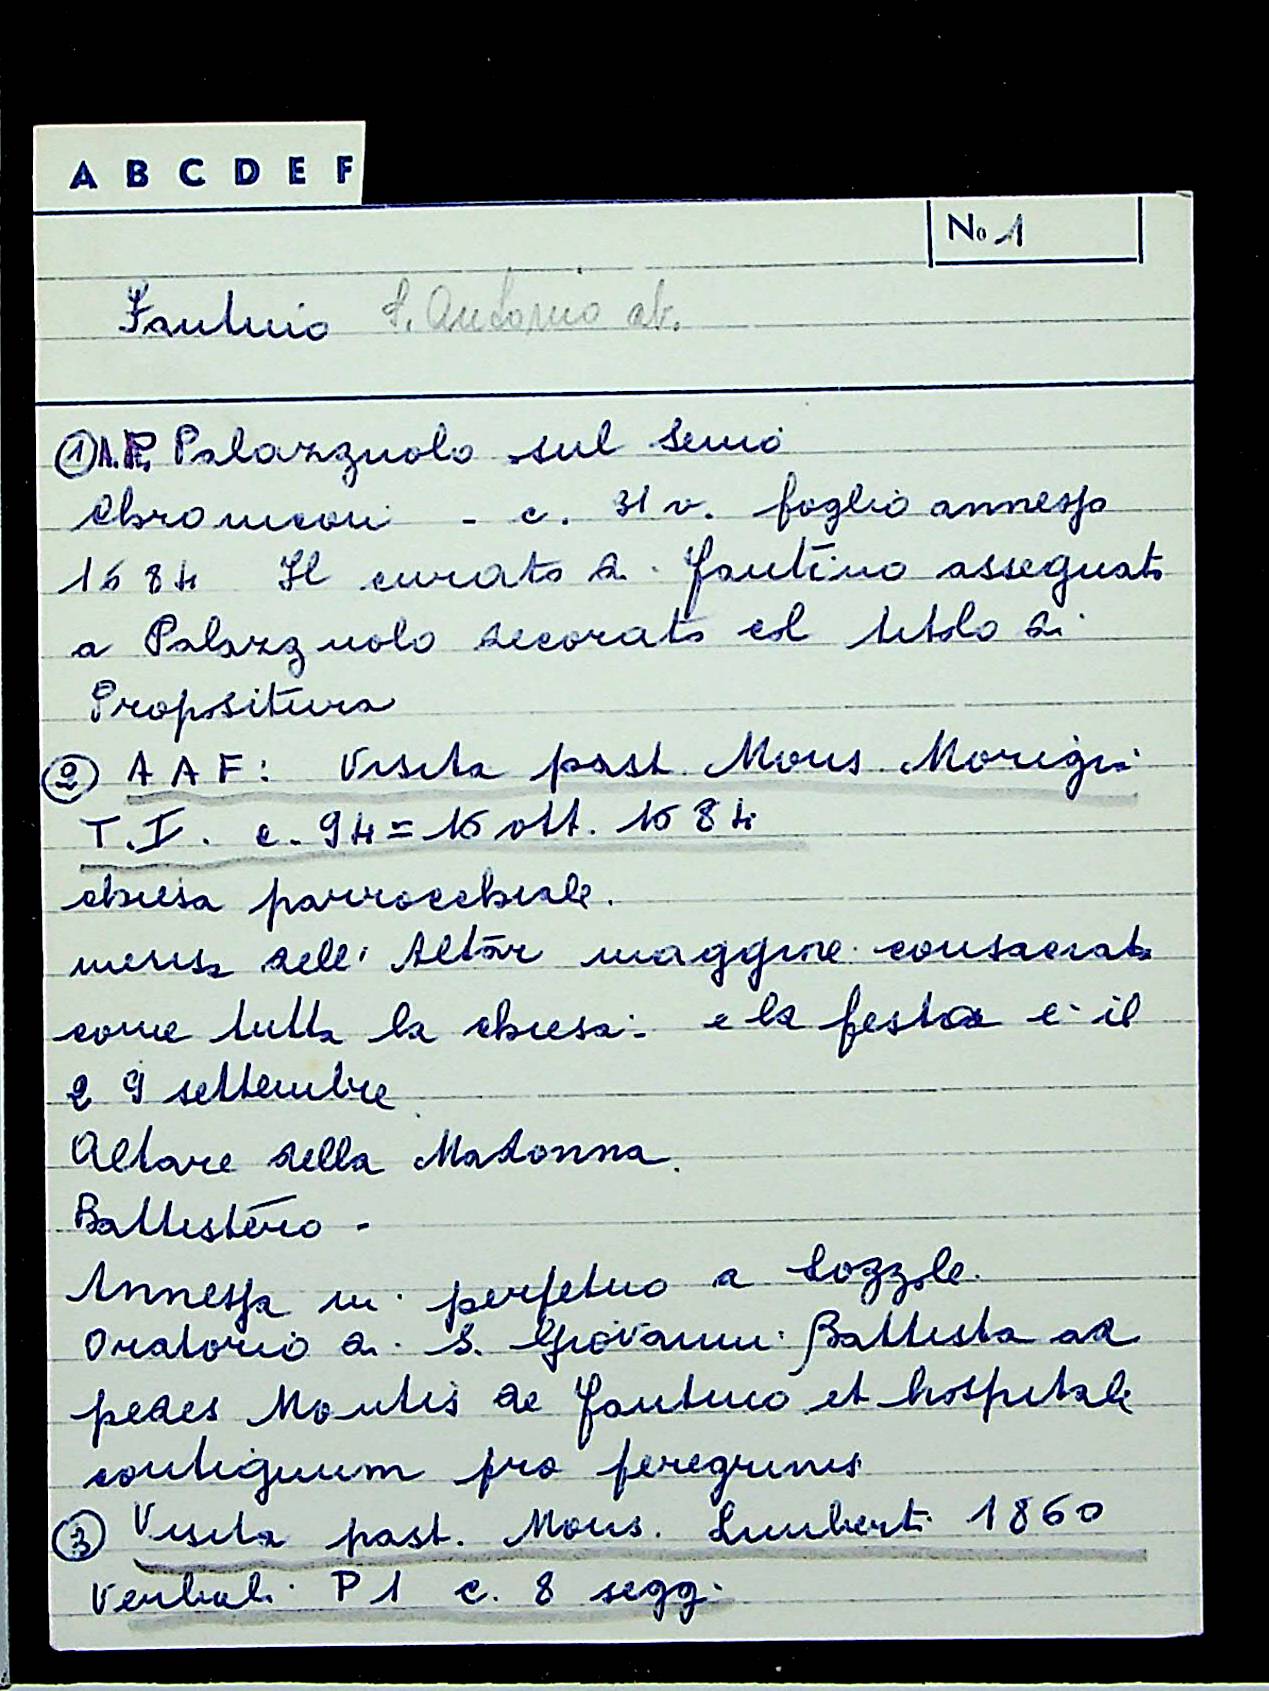 A B C D E F
No 1
Fantino S. Antonio ab.
① A.P. Palazzuolo sul Senio
Chronicon - c. 31 v. foglio annesso
1684 Il curato di Fantino assegnato
a Palazzuolo decorato col titolo di
Propositura
② A A F: Visita past. Mons. Morigia
T.I. c. 94 = 16 ott. 1684
chiesa parrocchiale.
mensa dell' Altar maggiore consacrata
come tutta la chiesa: e la festa è il
29 settembre
Altare della Madonna.
Battistero -
Annessa in perpetuo a Lozzole.
Oratorio di S. Giovanni Battista ad
pedes Montis de Fantino et hospitale
contiguum pro peregrinis
③ Visita past. Mons. Limberti 1860
Verbali P1 c. 8 segg.